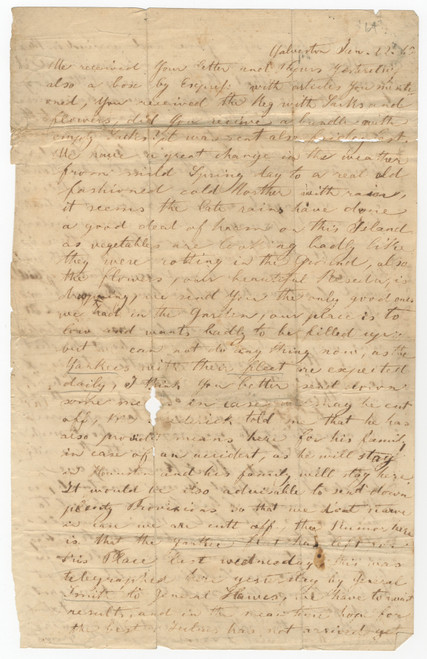 Galveston Jan. 12.
We received Your letter and Yours Yesterday
also a box by Express with article You menti
oned, You received the Keg with Ducks and
flowers, did You receive a bundle with
empty Sacks it was sent also
We have a great change in the weather
from mild Spring day to a real old
fashioned cold Norther with rain,
it seems the late rains have done
a good deal of harm on this Island
as vegetables are looking badly like
they were rotting in the Ground, also
the flowers, our beautiful is
we send You the only good ones
we have in the Garden, our place is to
low and wants badly to be filled up
but can not do any thing now, as the
Yankees with their fleet are expected
daily, I think You better send down
some in case we may be cut
off, told me that he has
also provided means here for his family,
in case of an accident, as he will stay
in Houston and his family will stay here
It would be also advisable to send down
plenty Provisions so that we dont starve
in case we are cut off, the Rumor here
is that the Yankee fleet has left
this Place last Wednesday this was
telegraphed here yesterday by General
Smith to General Hawes, we have to wait
results, and in the mean time hope for
the best, has not arrived yet